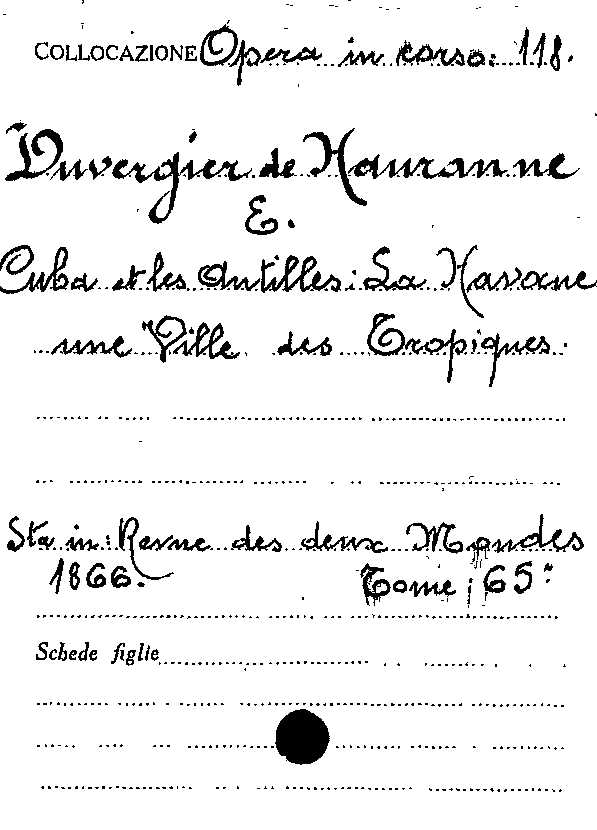 COLLOCAZIONE Opera in corso: 118.
Duvergier de Hauranne
E.
Cuba et les Antilles: La Havane
une Ville des Tropiques.
Sta in: Revue des deux Mondes
1866. Tome: 65°
Schede figlie